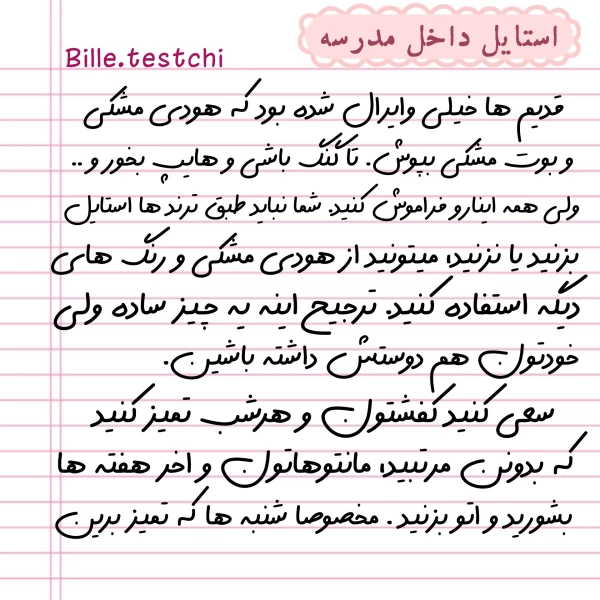 استایل داخل مدرسه
Bille.testchi
قدیم ها خیلی وایرال شده بود که هودی مشکی
و بوت مشکی بپوش. تا گنگ باشی و هایپ بخور و ..
ولی همه اینارو فراموش کنید. شما نباید طبق ترند ها استایل
بزنید یا نزنید، میتونید از هودی مشکی و رنگ های
دیگه استفاده کنید. ترجیح اینه یه چیز ساده ولی
خودتون هم دوستش داشته باشین.
سعی کنید کفشتون و هرشب تمیز کنید
که بدونن مرتبید، مانتوهاتون و اخر هفته ها
بشورید و اتو بزنید . مخصوصا شنبه ها که تمیز برین